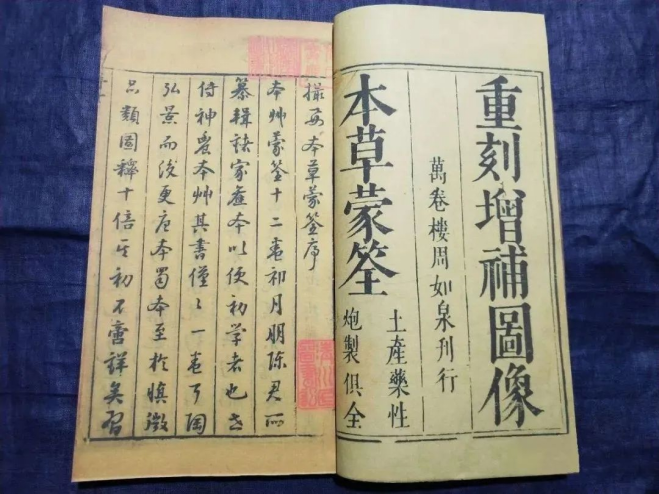 重刻增補圖像
萬卷樓周如泉刊行
本草蒙筌
土產藥性
炮製俱全
撮要本草蒙筌序
本艸蒙筌十二卷祁月明陳君所
纂輯諸家舊本以便初學者也世
傳神農本艸其書僅〻一卷耳陶
弘景而後更唐本蜀本至於慎微
品類圖釋十倍其初不啻詳矣習